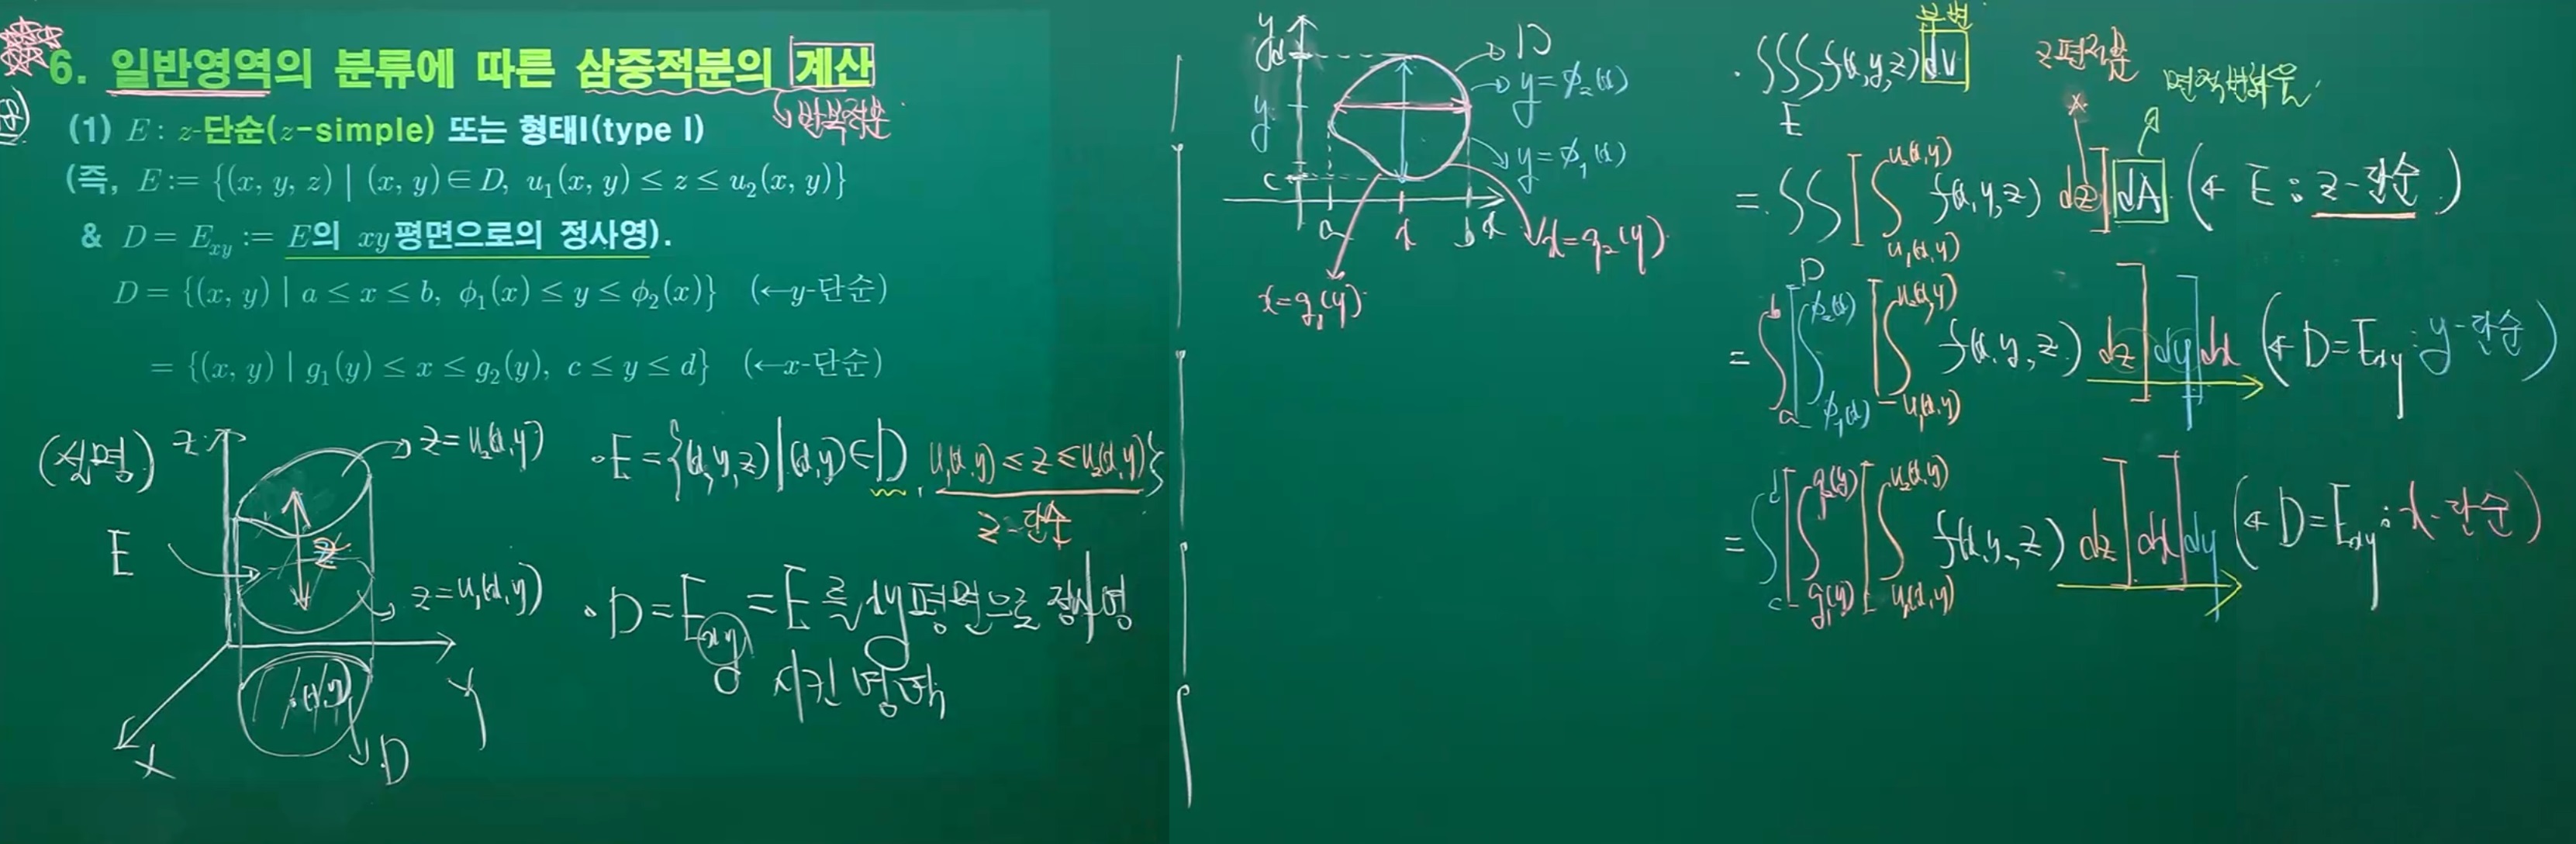 6. 일반영역의 분류에 따른 삼중적분의 계산
↳ 반복적분
(1) E : z-단순(z-simple) 또는 형태I(type I)
(즉, E := {(x, y, z) | (x, y)∈D, u₁(x, y) ≤ z ≤ u₂(x, y)}
& D = E_xy := E의 xy평면으로의 정사영).
D = {(x, y) | a ≤ x ≤ b, φ₁(x) ≤ y ≤ φ₂(x)} (←y-단순)
= {(x, y) | g₁(y) ≤ x ≤ g₂(y), c ≤ y ≤ d} (←x-단순)
(설명)
z
z=u₂(x,y)
E
z
z=u₁(x,y)
(x,y)
D
x
y
·E={(x,y,z)|(x,y)∈D, u₁(x,y)≤z≤u₂(x,y)}
z-단순
·D=E_xy=E를 xy평면으로 정사영
시킨 영역
y
d
y
c
a
x
b
x
D
y=φ₂(x)
y=φ₁(x)
x=g₂(y)
x=g₁(y)
z편적분
면적변화율
·∫∫∫_E f(x,y,z)dV
=∫∫_D [∫_{u₁(x,y)}^{u₂(x,y)} f(x,y,z) dz]dA (← E : z-단순)
=∫_a^b [∫_{φ₁(x)}^{φ₂(x)} [∫_{u₁(x,y)}^{u₂(x,y)} f(x,y,z) dz]dy]dx (← D=E_xy : y-단순)
=∫_c^d [∫_{g₁(y)}^{g₂(y)} [∫_{u₁(x,y)}^{u₂(x,y)} f(x,y,z) dz]dx]dy (← D=E_xy : x-단순)